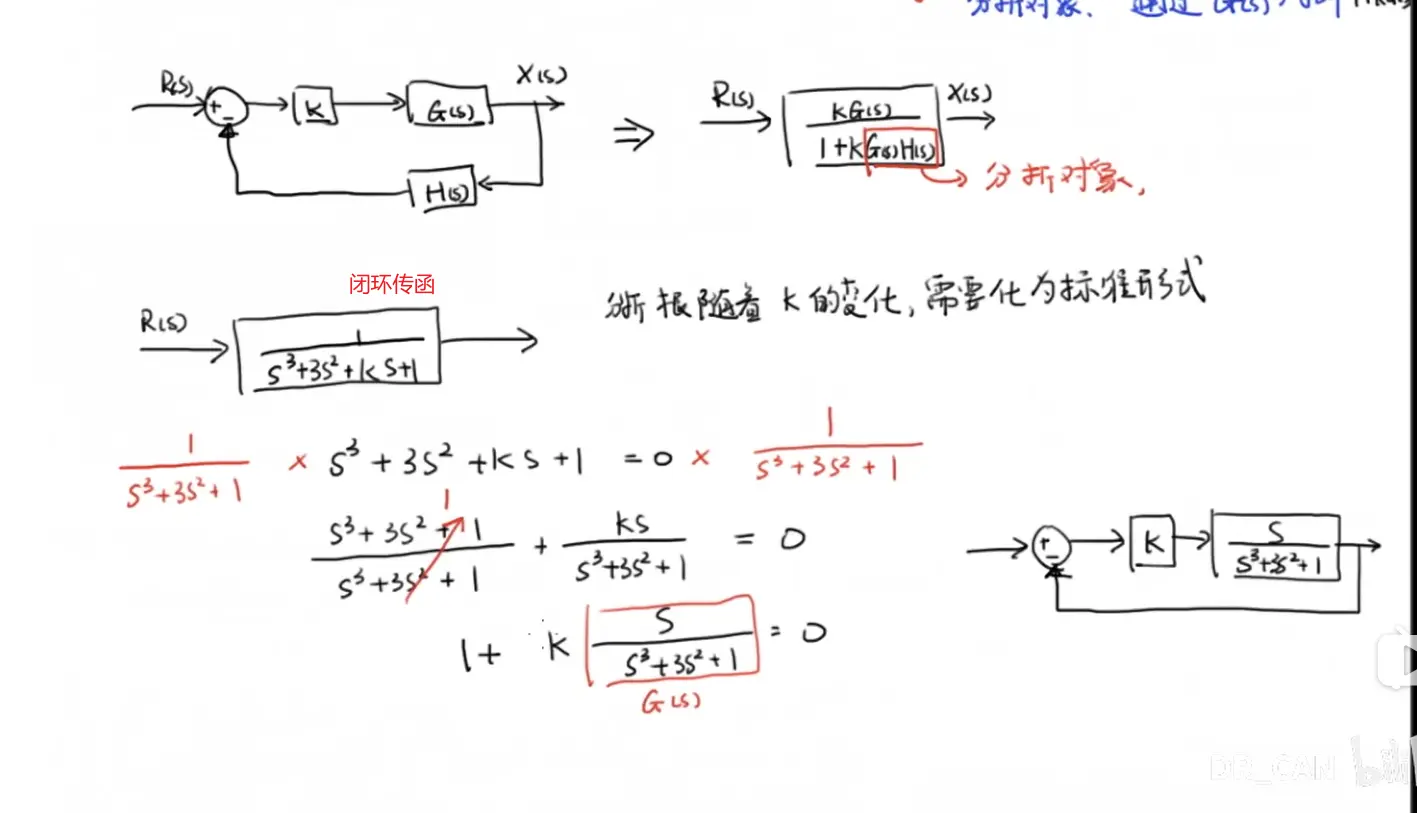 分析对象、通过
R(s) + - K G(s) X(s) H(s)
⇒ R(s) KG(s) / 1+KG(s)H(s) X(s)
→ 分析对象,
闭环传函
R(s) 1 / s³+3s²+ks+1
分析根随着 K 的变化, 需要化为标准形式
1 / s³+3s²+1 × s³+3s²+ks+1 = 0 × 1 / s³+3s²+1
1
s³+3s²+1 / s³+3s²+1 + ks / s³+3s²+1 = 0
+ - K s / s³+3s²+1
1+ K s / s³+3s²+1 = 0
G(s)
DR_CAN